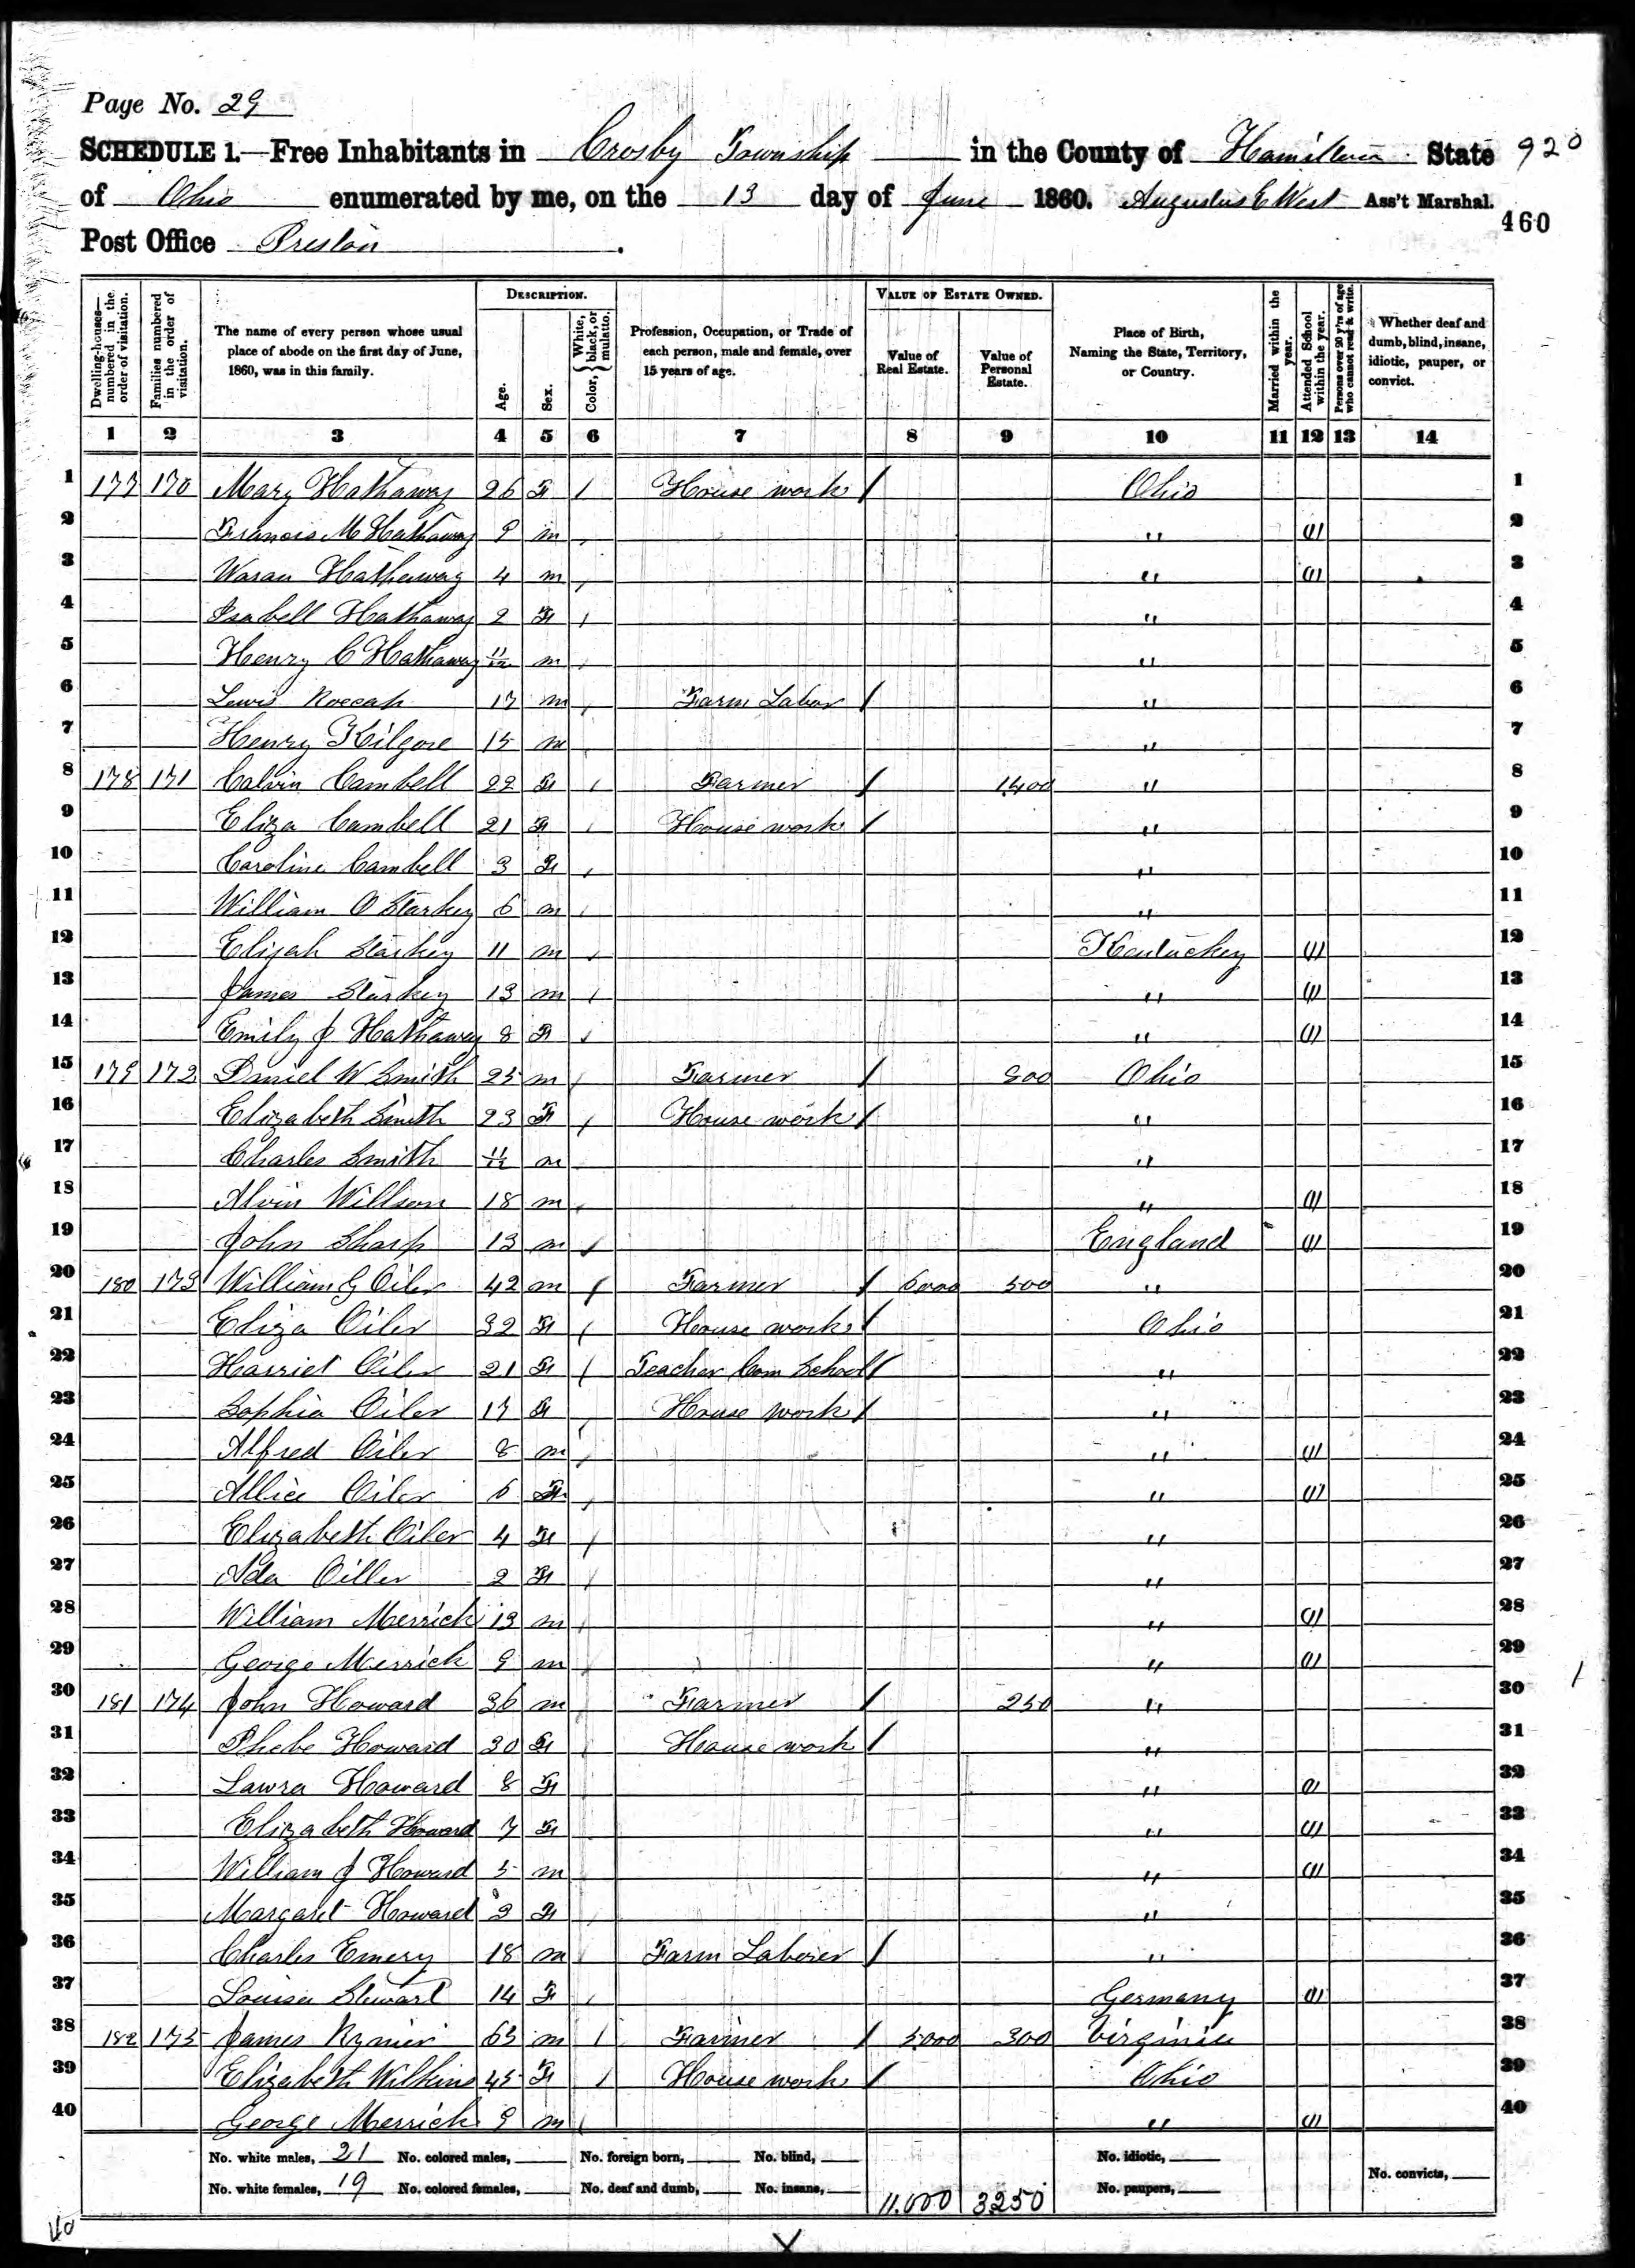 Page No. 29
SCHEDULE 1.—Free Inhabitants in Crosby Township in the County of Hamilton State 920
of Ohio enumerated by me, on the 13 day of June 1860. Augustus E West Ass't Marshal.
460
Post Office Preston.
Dwelling-houses—numbered in the order of visitation.
Families numbered in the order of visitation.
The name of every person whose usual place of abode on the first day of June, 1860, was in this family.
DESCRIPTION.
Age.
Sex.
Color, { White, black, or mulatto.
Profession, Occupation, or Trade of each person, male and female, over 15 years of age.
VALUE OF ESTATE OWNED.
Value of Real Estate.
Value of Personal Estate.
Place of Birth, Naming the State, Territory, or Country.
Married within the year.
Attended School within the year.
Persons over 20 y'rs of age who cannot read & write.
Whether deaf and dumb, blind, insane, idiotic, pauper, or convict.
1 2 3 4 5 6 7 8 9 10 11 12 13 14
1 177 170 Mary Hathaway 26 F / House work / Ohio 1
2 Francis M Hathaway 9 m / " (1) 2
3 Hathaway 4 m / " (1) 3
4 Isabell Hathaway 2 F / " 4
5 Henry C Hathaway 11/12 m / " 5
6 Lewis 17 m / Farm Labor / " 6
7 Henry Kilgore 15 m / " 7
8 178 171 Calvin Cambell 22 F / Farmer / 1400 " 8
9 Eliza Cambell 21 F / House work / " 9
10 Caroline Cambell 3 F / " 10
11 William O Starkey 6 m / " 11
12 Elijah Starkey 11 m / Kentuckey (1) 12
13 James Starkey 13 m / " (1) 13
14 Emily J Hathaway 8 F / " (1) 14
15 179 172 Daniel W Smith 25 m / Farmer / 800 Ohio 15
16 Elizabeth Smith 23 F / House work / " 16
17 Charles Smith 11/12 m " 17
18 Alvin Willson 18 m / " (1) 18
19 John Sharp 13 m / England (1) 19
20 180 173 William G Oiler 42 m / Farmer / 6000 500 " 20
21 Eliza Oiler 32 F / House work / Ohio 21
22 Harriet Oiler 21 F / Teacher Com School / " 22
23 Sophia Oiler 17 F / House work / " 23
24 Alfred Oiler 8 m / " (1) 24
25 Allice Oiler 6 F / " (1) 25
26 Elizabeth Oiler 4 F / " 26
27 Ada Oiller 2 F / " 27
28 William Merrick 13 m / " (1) 28
29 George Merrick 9 m / " (1) 29
30 181 174 John Howard 36 m Farmer / 250 " 30
31 Phebe Howard 30 F / House work / " 31
32 Lawra Howard 8 F " (1) 32
33 Elizabeth Howard 7 F " (1) 33
34 William J Howard 5 m " (1) 34
35 Margaret Howard 3 F / " 35
36 Charles Emery 18 m / Farm Laborer / " 36
37 Louisa Stewart 14 F / Germany (1) 37
38 182 175 James 65 m / Farmer / 5000 300 Virginia 38
39 Elizabeth Wilkins 45 F / House work / Ohio 39
40 George Merrick 9 m / " (1) 40
No. white males, 21 No. colored males, No. foreign born, No. blind, No. idiotic,
No. convicts,
No. white females, 19 No. colored females, No. deaf and dumb, No. insane, 11.000 3250 No. paupers,
40